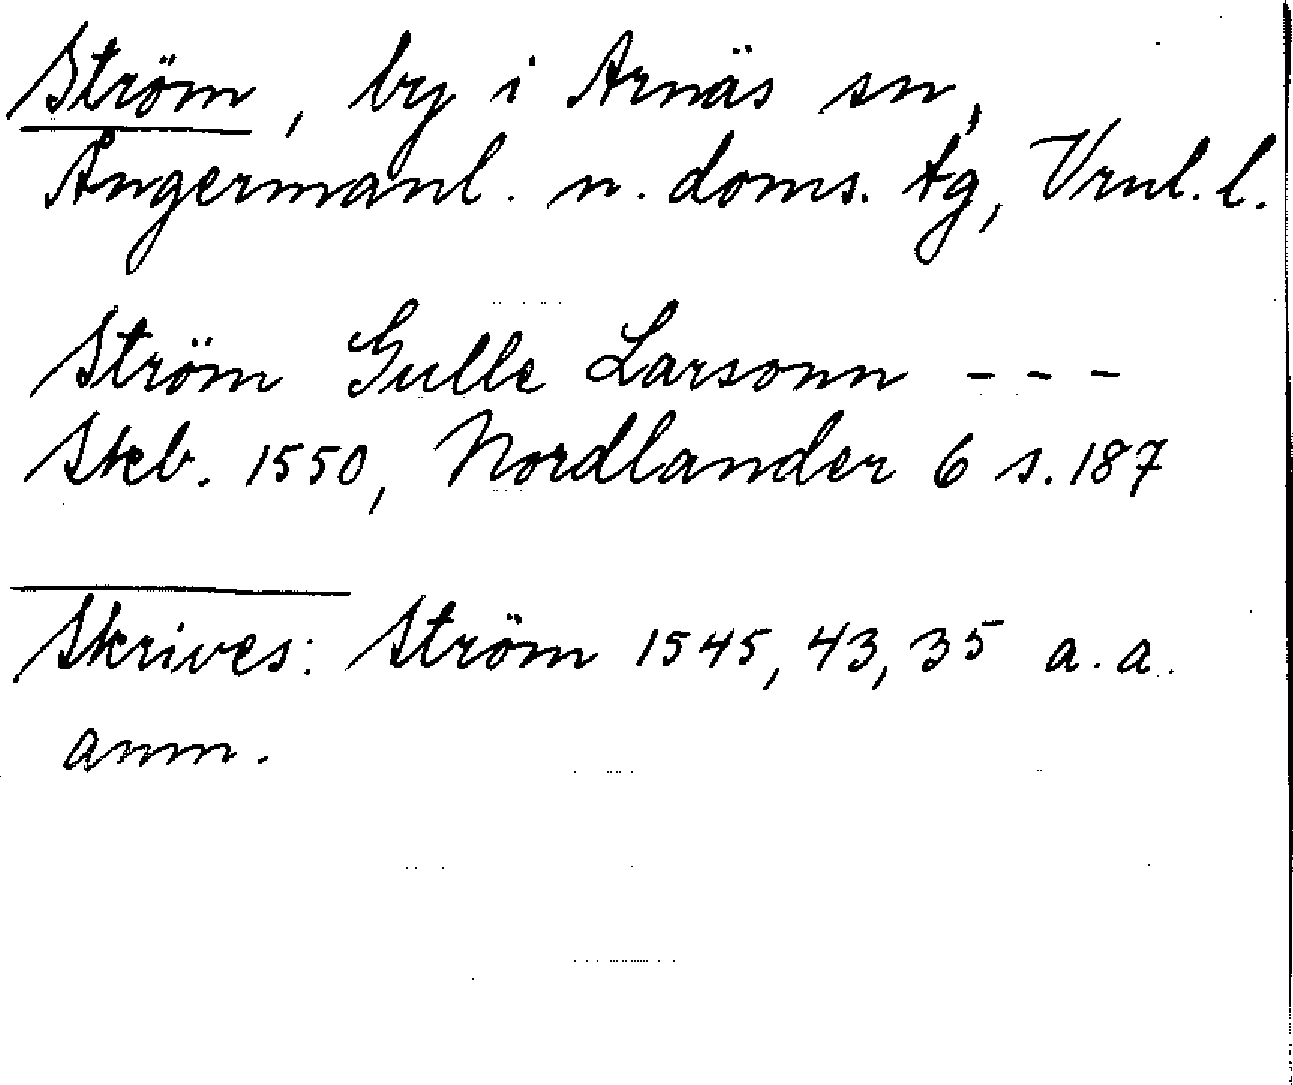 Ström, by i Arnäs sn,
Ångermanl. n. doms. tg, Vrnl. l.
Ström Gulle Larsonn - - -
Skb. 1550, Nordlander 6 s. 187
Skrives: Ström 1545, 43, 35 a. a.
anm.